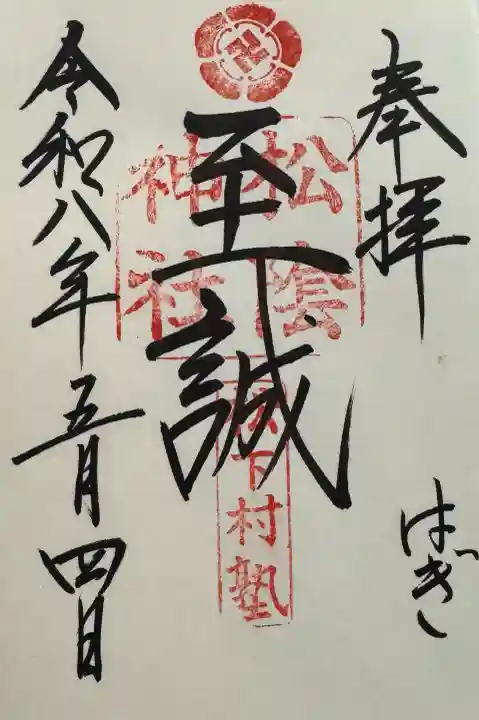 奉拝
はぎ
至誠
松陰
神社
松下村塾
令和八年五月四日